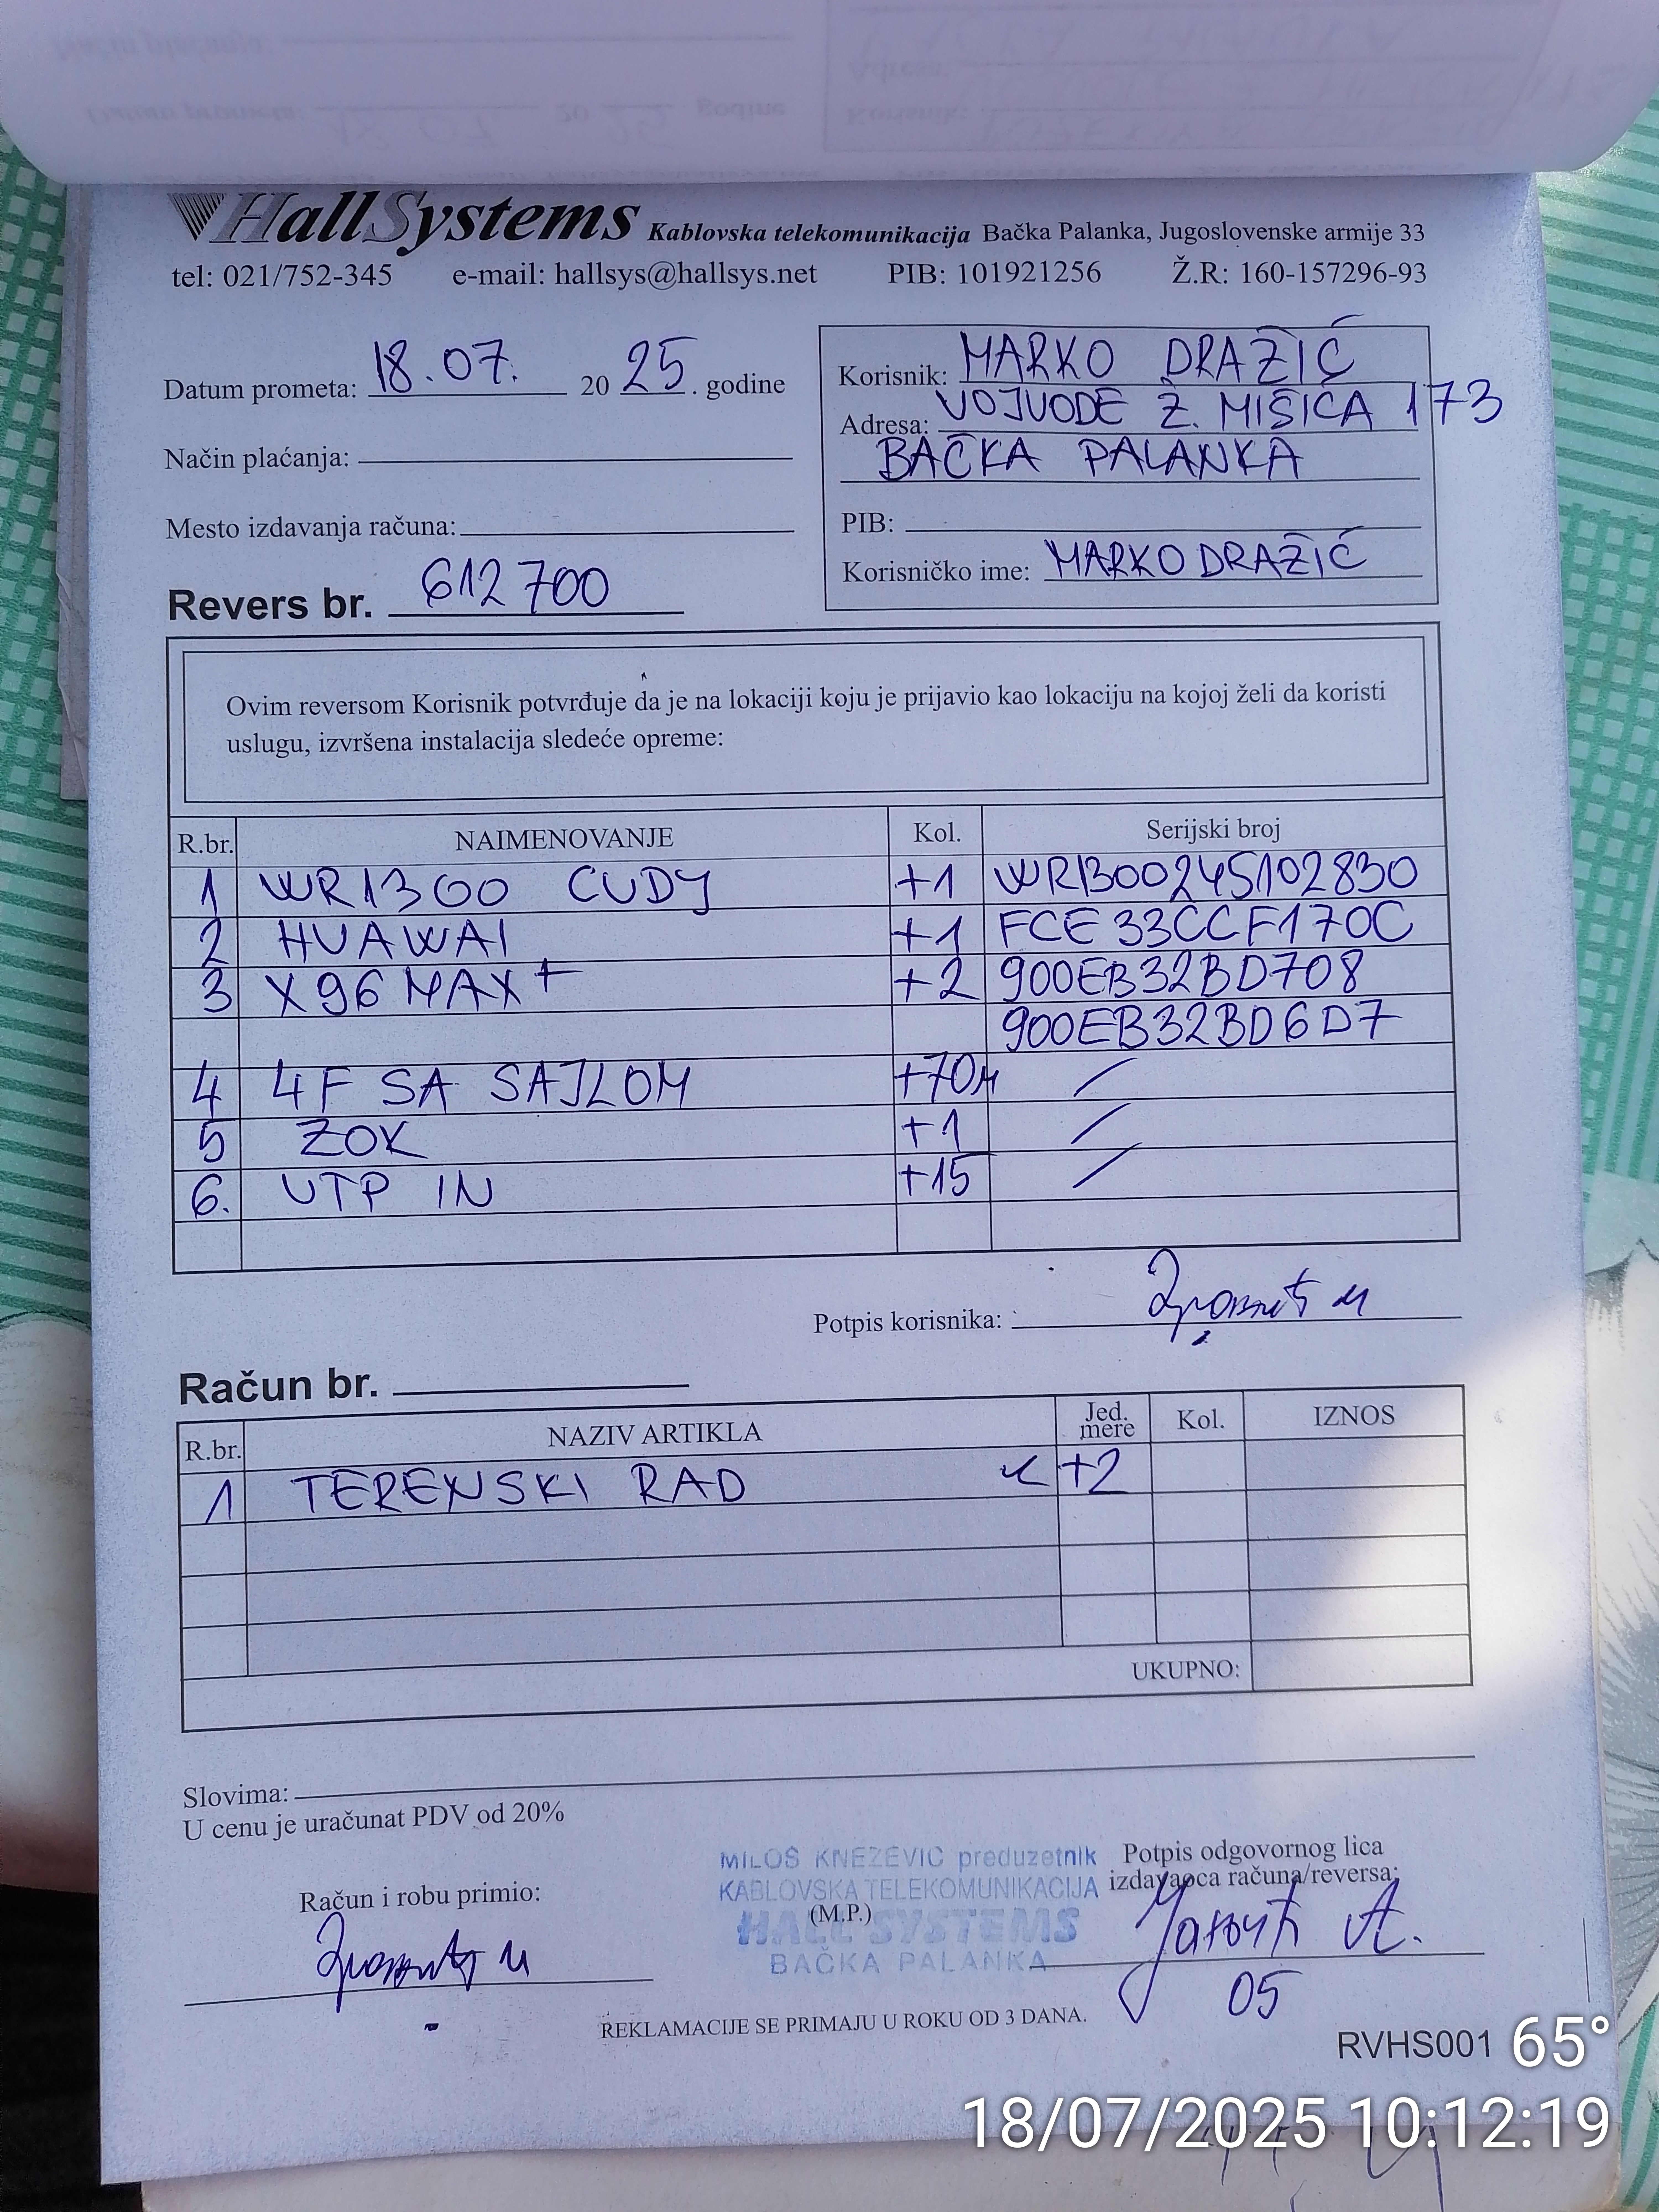 HallSystems Kablovska telekomunikacija Bačka Palanka, Jugoslovenske armije 33
tel: 021/752-345 e-mail: hallsys@hallsys.net PIB: 101921256 Ž.R: 160-157296-93
Datum prometa: 18.07. 20 25. godine
Način plaćanja:
Mesto izdavanja računa:
Revers br. 612700
Korisnik: MARKO DRAŽIĆ
Adresa: VOJVODE Ž. MIŠIĆA 173
BAČKA PALANKA
PIB:
Korisničko ime: MARKODRAŽIĆ
Ovim reversom Korisnik potvrđuje da je na lokaciji koju je prijavio kao lokaciju na kojoj želi da koristi
uslugu, izvršena instalacija sledeće opreme:
R.br. NAIMENOVANJE Kol. Serijski broj
1 WR1300 CUDY +1 WR1300245102830
2 HUAWAI +1 FCE33CCF170C
3 X96 MAX+ +2 900EB32BD708
900EB32BD6D7
4 4F SA SAJLOM +70M /
5 ZOK +1 /
6. UTP IN +15 /
Potpis korisnika:
Račun br.
R.br. NAZIV ARTIKLA Jed. mere Kol. IZNOS
1 TERENSKI RAD +2
UKUPNO:
Slovima:
U cenu je uračunat PDV od 20%
Račun i robu primio:
MILOŠ KNEŽEVIĆ preduzetnik
KABLOVSKA TELEKOMUNIKACIJA
(M.P.)
HALL SYSTEMS
BAČKA PALANKA
Potpis odgovornog lica
izdavaoca računa/reversa:
05
REKLAMACIJE SE PRIMAJU U ROKU OD 3 DANA.
RVHS001
65°
18/07/2025 10:12:19